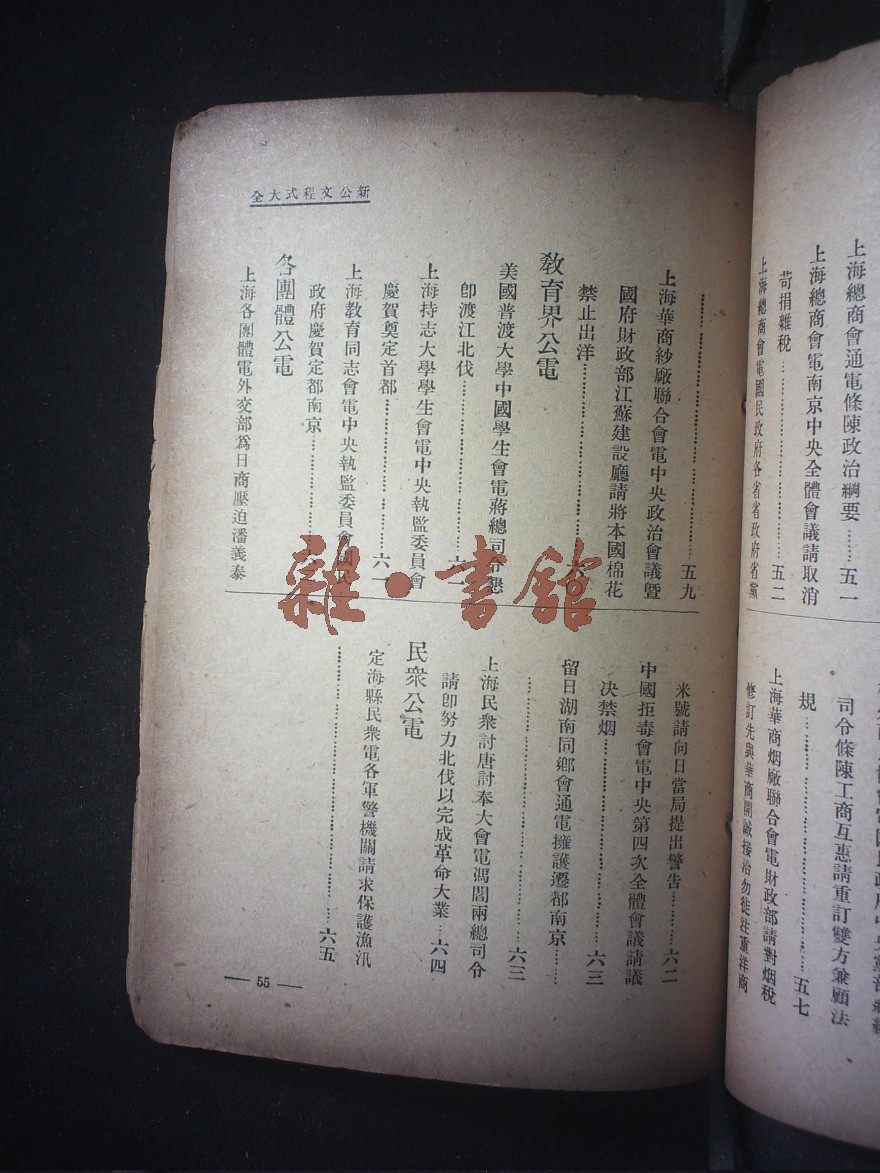 上海總商會通電條陳政治綱要……五一
上海總商會電南京中央全體會議請取消
苛捐雜稅……五二
上海總商會電國民政府各省省政府省黨
司令條陳工商互惠請重訂雙方兼顧法
規……五七
上海華商烟廠聯合會電財政部請對烟稅
修訂先與華商開誠接洽勿徒注重洋商
新公文程式大全
……五九
上海華商紗廠聯合會電中央政治會議暨
國府財政部江蘇建設廳請將本國棉花
禁止出洋……六
教育界公電
美國普渡大學中國學生會電蔣總司令懇
卽渡江北伐……六
上海持志大學學生會電中央執監委員會
慶賀奠定首都……六一
上海教育同志會電中央執監委員會國民
政府慶賀定都南京……
各團體公電
上海各團體電外交部爲日商壓迫潘義泰
米號請向日當局提出警告……六二
中國拒毒會電中央第四次全體會議請議
決禁烟……六三
留日湖南同鄉會通電擁護遷都南京……
……六三
上海民衆討唐討奉大會電馮閻兩總司令
請卽努力北伐以完成革命大業…六四
民衆公電
定海縣民衆電各軍警機關請求保護漁汛
……六五
— 55 —
雜·書館